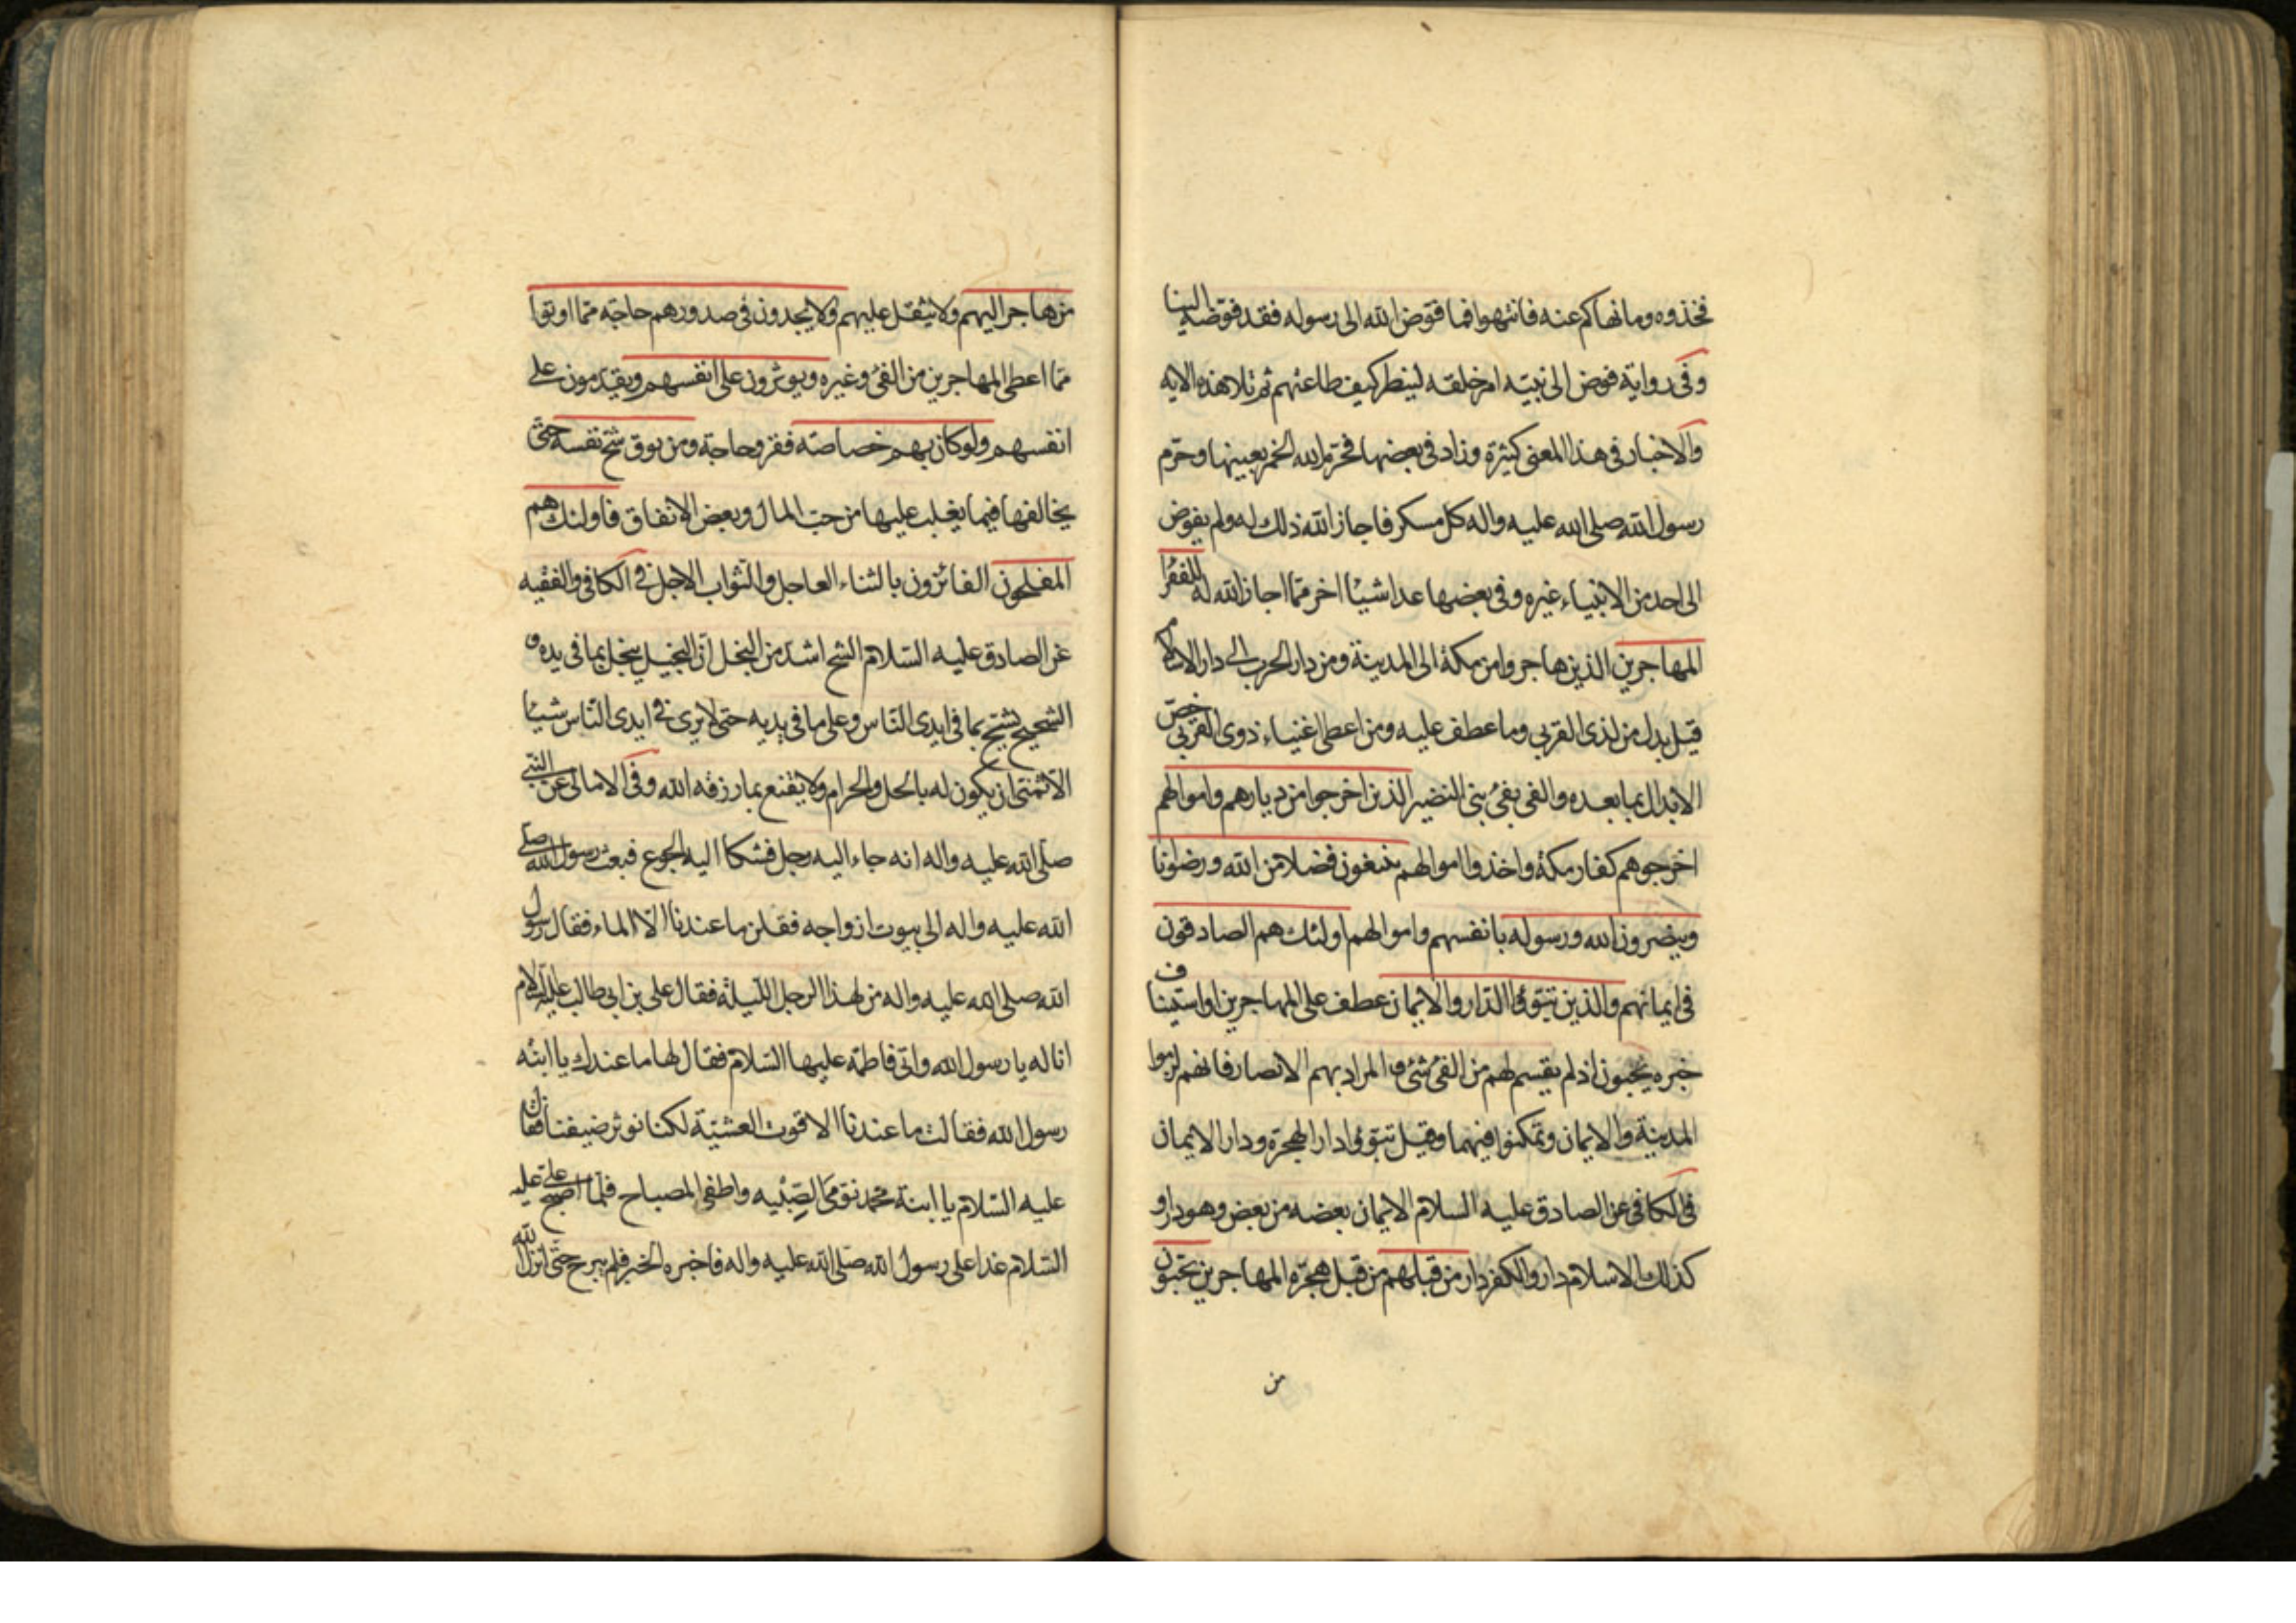 فخذوه وما نهاكم عنه فانتهوا فما فوّض الله الى رسوله فقد فوّضه الينا
وفى رواية فوض الى نبيّه امر خلقه لينظر كيف طاعتهم ثم تلا هذه الايه
والاخبار فى هذا المعنى كثيرة وزاد فى بعضها فحرّم الله الخمر بعينها وحرّم
رسول الله صلى الله عليه واله كل مسكر فاجاز الله ذلك له ولم يفوض
الى احد من الانبياء غيره وفى بعضها عدا شيئا اخر ممّا اجاز الله له للفقرا
المهاجرين الذين هاجروا من مكة الى المدينة ومن دار الحرب الى دار الاسلام
قيل بدل من لذى القربى وما عطف عليه ومن اعطى اغنياء ذوى القربى خصّ
الابدال بما بعده والفى بفئ بنى النضير الذين اخرجوا من ديارهم واموالهم
اخرجوهم كفار مكة واخذوا اموالهم يبتغون فضلا من الله ورضوانا
وينصرون الله ورسوله بانفسهم واموالهم اولئك هم الصادقون
فى ايمانهم والذين تبوّؤا الدّار والايمان عطف على المهاجرين او استيناف
خبره يحبّون اذ لم يقسم لهم من الفئ شئ والمراد بهم الانصار فانهم لزموا
المدينة والايمان وتمكنوا فيهما وقيل تبوّؤا دار الهجرة ودار الايمان
فى الكافى عن الصادق عليه السلام الايمان بعضه من بعض وهو دار و
كذلك الاسلام دار والكفر دار من قبلهم من قبل هجرة المهاجرين يحبّون
من
من هاجر اليهم ولا يثقل عليهم ولا يجدون فى صدورهم حاجة ممّا اوتوا
ممّا اعطى المهاجرين من الفئ وغيره ويؤثرون على انفسهم ويقدّمون على
انفسهم ولو كان بهم خصاصة فقر وحاجة ومن يوق شحّ نفسه حتّى
يخالفها فيما يغلب عليها من حبّ المال وبغض الانفاق فاولئك هم
المفلحون الفائزون بالثناء العاجل والثواب الاجل فى الكافى والفقيه
عن الصادق عليه السّلام الشح اشدّ من البخل انّ البخيل يبخل بما فى يده و
الشحيح يشحّ بما فى ايدى النّاس وعلى ما فى يديه حتى لا يرى فى ايدى النّاس شيئا
الّا تمنّى ان يكون له بالحل والحرام ولا يقنع بما رزقه الله وفى الامالى عن النّبى
صلّى الله عليه واله انه جاء اليه رجل فشكا اليه الجوع فبعث رسول الله صلى
الله عليه واله الى بيوت ازواجه فقلن ما عندنا الّا الماء فقال رسول
الله صلى الله عليه واله من لهذا الرجل اللّيلة فقال على بن ابى طالب عليه السلام
انا له يا رسول الله واتى فاطمة عليها السّلام فقال لها ما عندك يا ابنة
رسول الله فقالت ما عندنا الا قوت العشيّة لكنا نوثر ضيفنا فقال
عليه السّلام يا ابنة محمد نوّمى الصّبيه واطفى المصباح فلمّا اصبح علىّ عليه
السّلام غدا على رسول الله صلّى الله عليه واله فاخبره الخبر فلم يبرح حتّى انزل الله